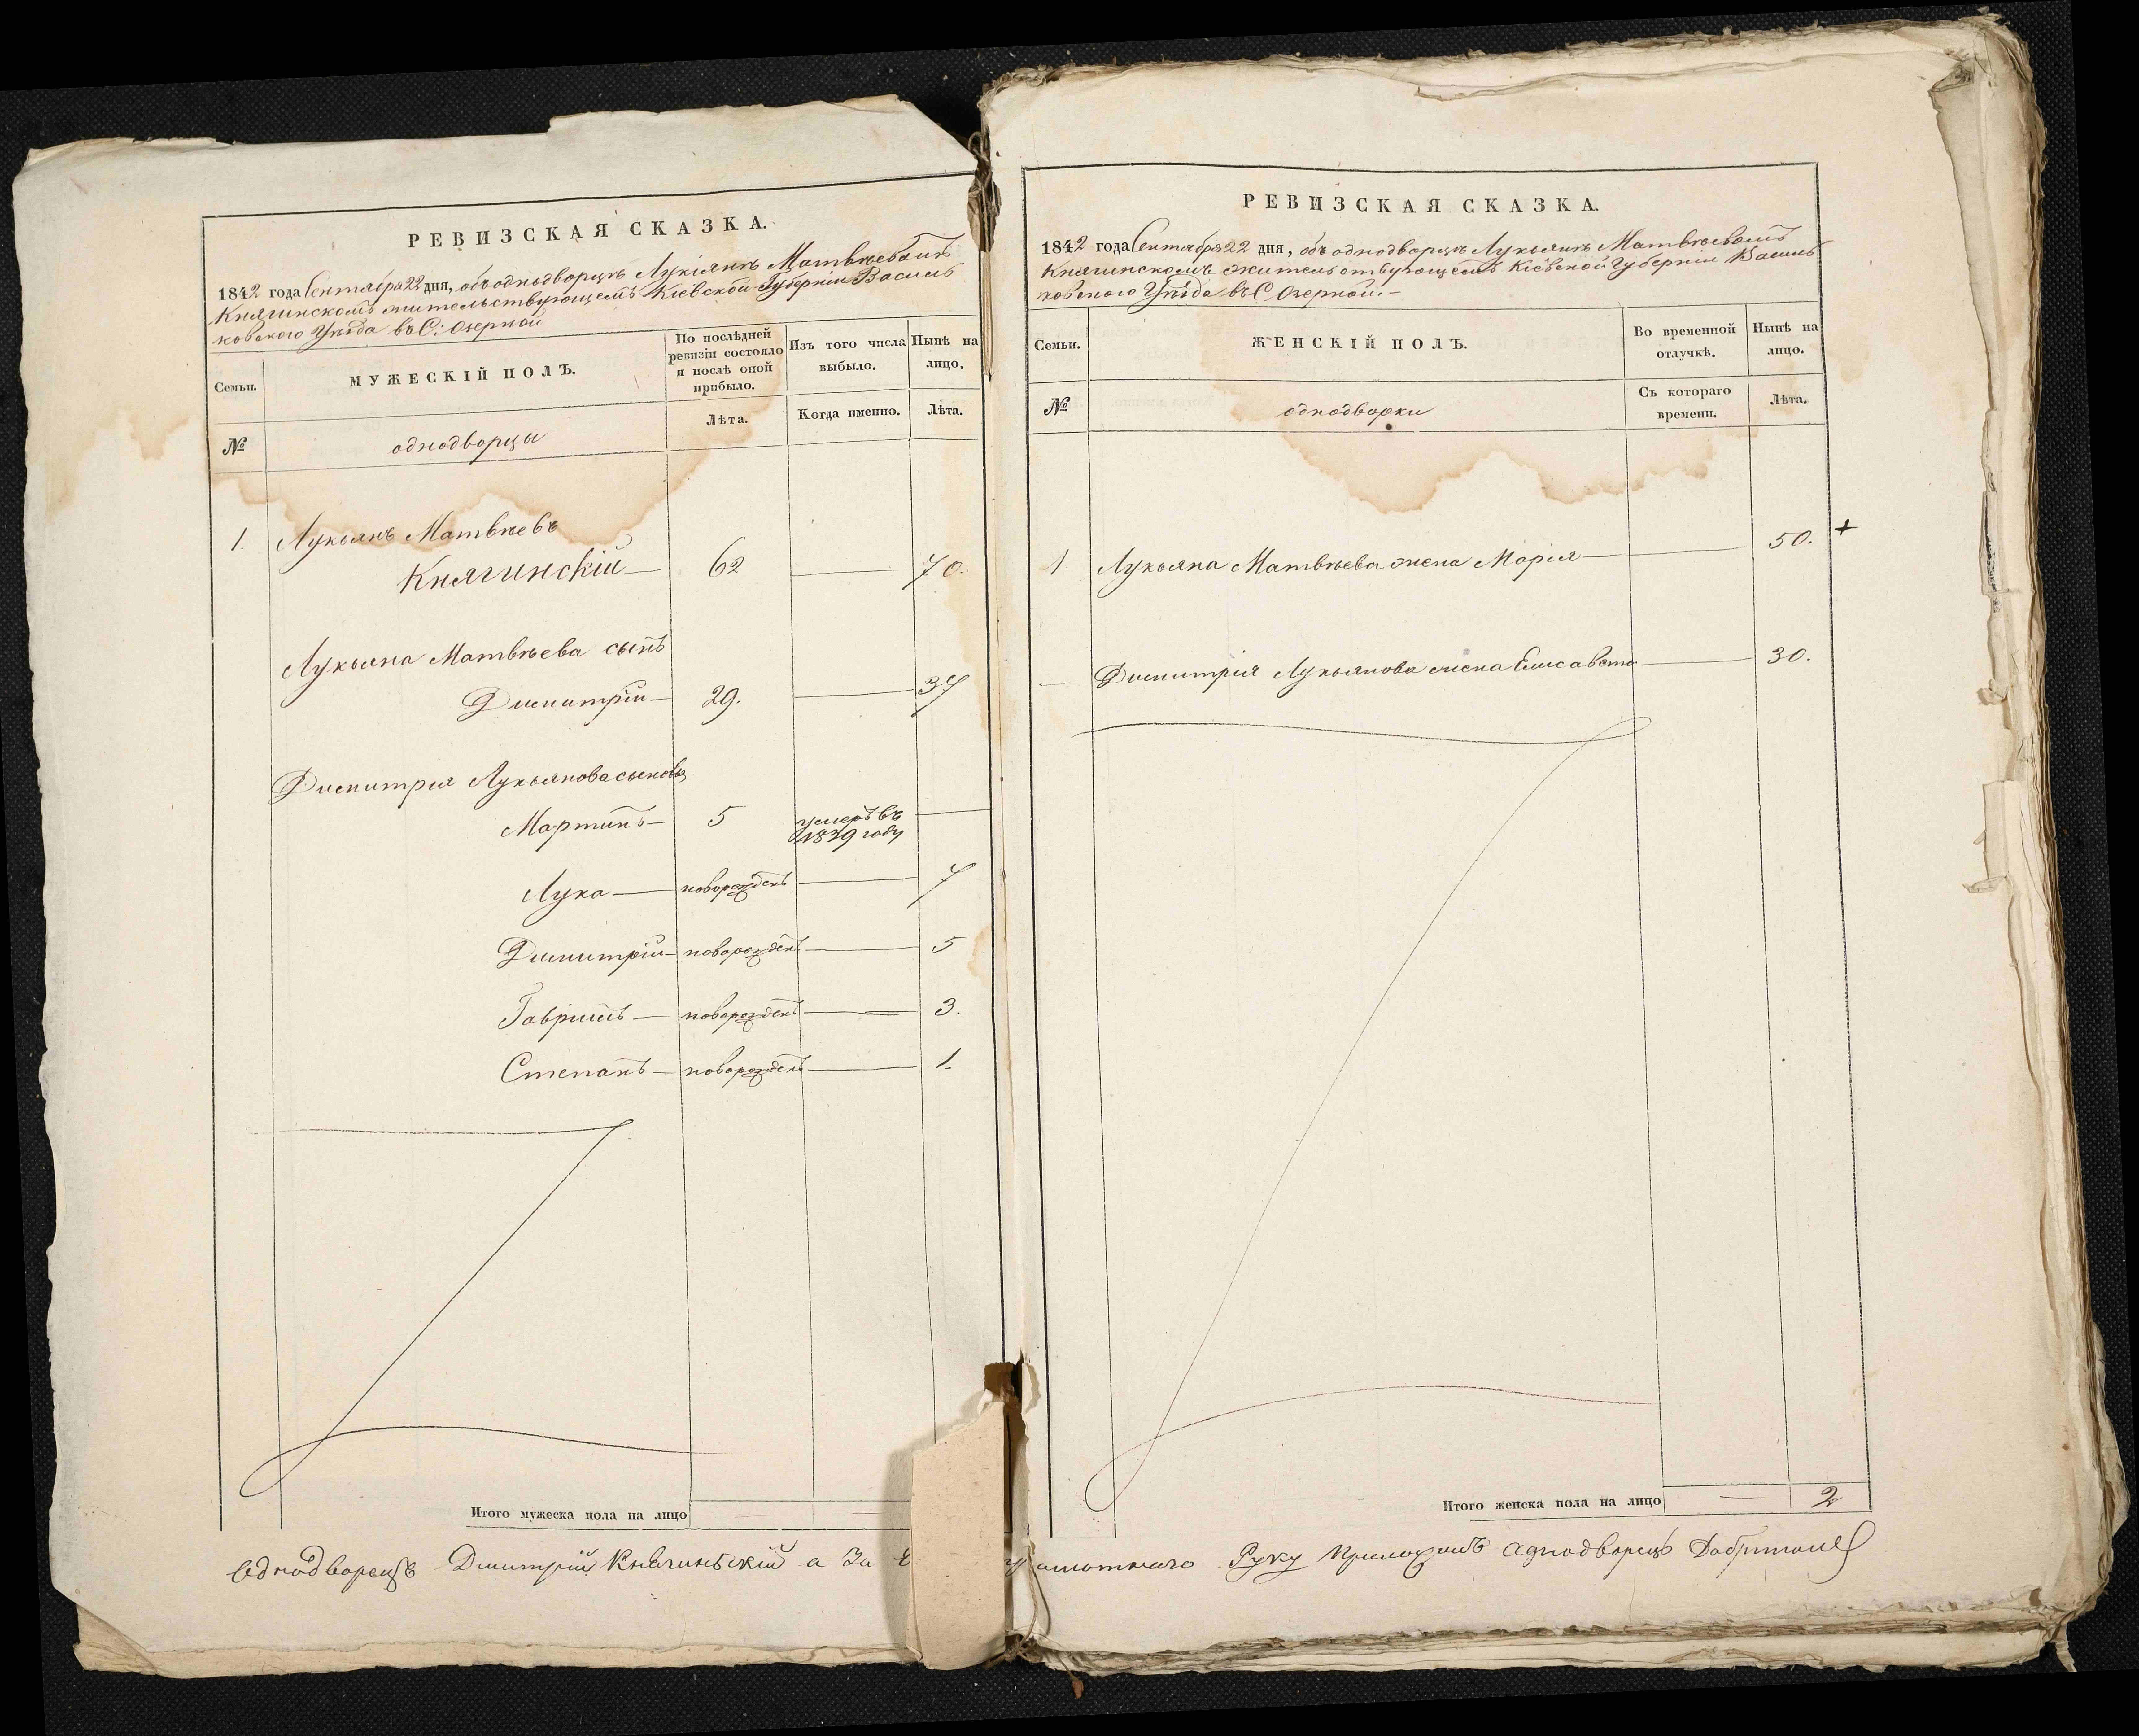 РЕВИЗСКАЯ СКАЗКА.
1842 года Сентября 22 дня, объ однодворцѣ Лукіянѣ Матвѣевомъ
Княгинскомъ жительствующемъ Кіевской Губерніи Василь
ковского Уѣзда въ С: Озерной
Семьи.
МУЖЕСКІЙ ПОЛЪ.
По послѣдней
ревизіи состояло
и послѣ оной
прибыло.
Изъ того числа
выбыло.
Нынѣ на
лицо.
№
однодворцы
Лѣта.
Когда именно.
Лѣта.
1. Лукьянъ Матвѣевъ
Княгинскій — 62 — 70.
Лукьяна Матвѣева сынъ
Димитрій — 29. — 37
Димитрія Лукьянова сыновья
Мартинъ — 5 умеръ въ —
1839 году
Лука — новорожденъ — 7
Димитрій — новорожденъ — 5
Гавріилъ — новорожденъ — 3.
Степанъ — новорожденъ — 1.
Итого мужеска пола на лицо — —
Однодворецъ Дмитрій Княгиньскій а За
РЕВИЗСКАЯ СКАЗКА.
1842 года Сентября 22 дня, объ однодворцѣ Лукьянѣ Матвѣевомъ
Княгинскомъ жительствующемъ Кіевской Губерніи Василь
ковского Уѣзда въ С Озерной. —
Семьи.
ЖЕНСКІЙ ПОЛЪ.
Во временной
отлучкѣ.
Нынѣ на
лицо.
№
однодворки
Съ котораго
времени.
Лѣта.
1 Лукьяна Матвѣева жена Марія — — 50. +
— Димитрія Лукьянова жена Елисавета — 30.
Итого женска пола на лицо — 2
Руку Приложилъ Аднодворецъ